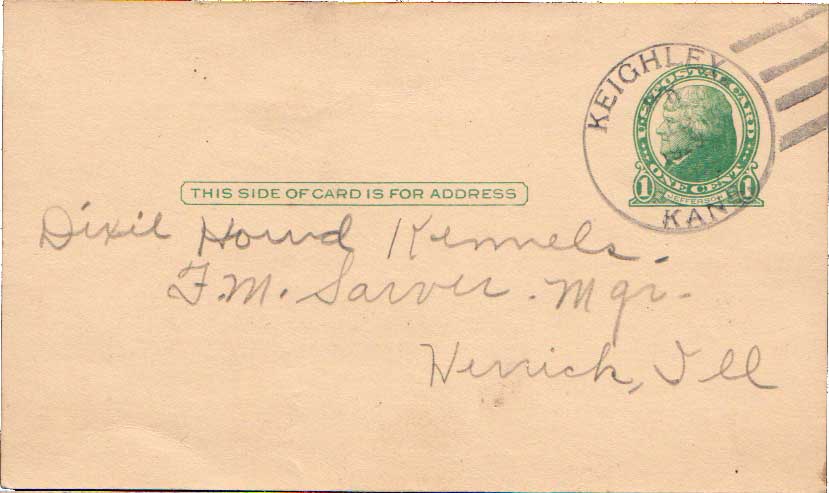 KEIGHLEY
KANS
U.S. POSTAL CARD
ONE CENT
1 JEFFERSON 1
THIS SIDE OF CARD IS FOR ADDRESS
Dixie Hound Kennels.
F.M. Sarver. Mgr.
Herrick, Ill